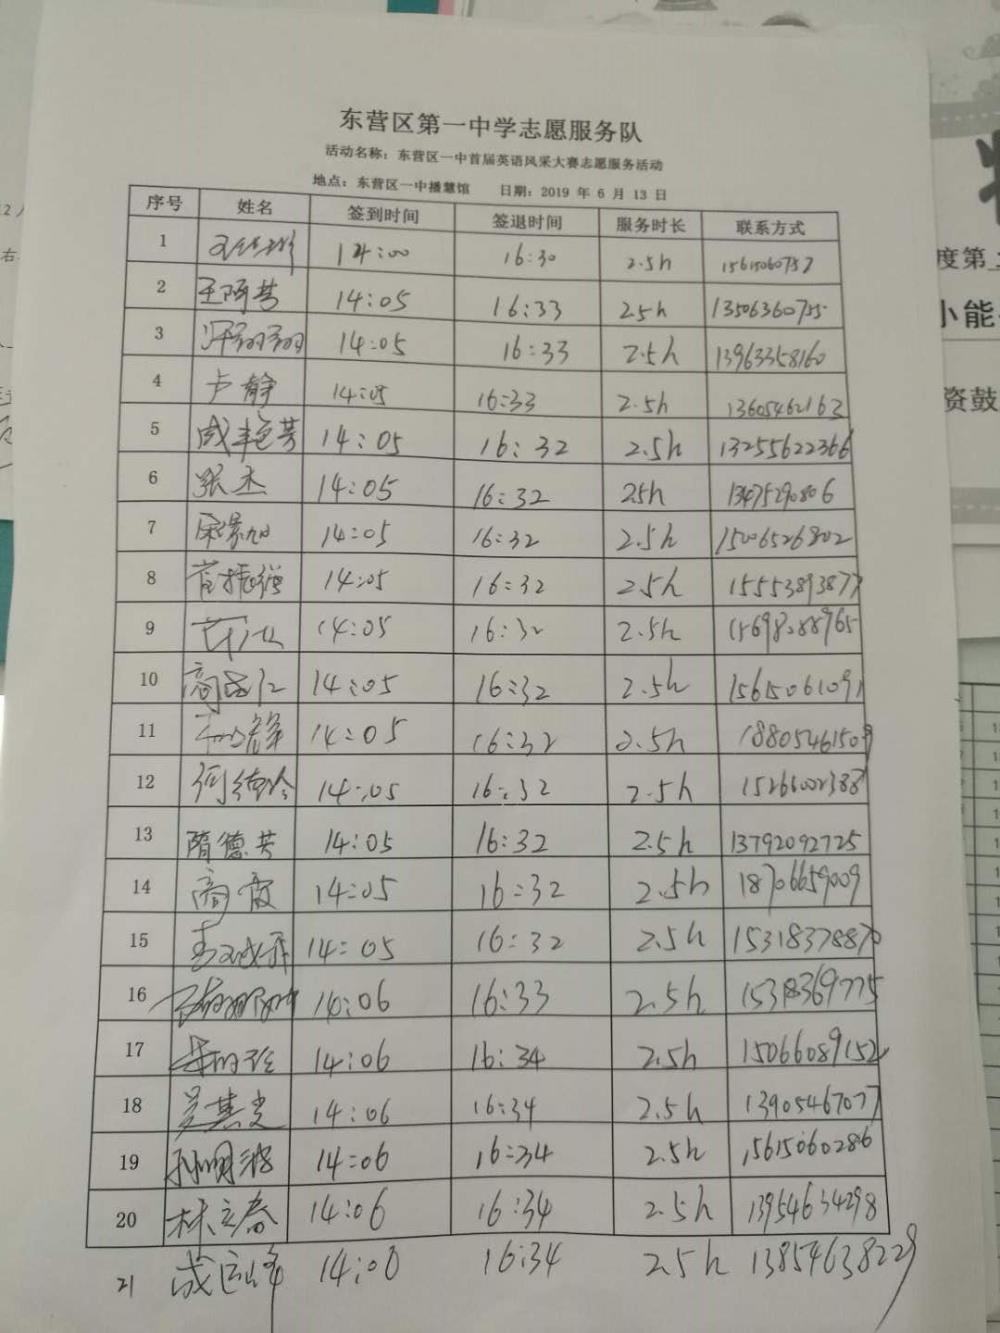 东营区第一中学志愿服务队
活动名称：东营区一中首届英语风采大赛志愿服务活动
地点：东营区一中播慧馆 日期：2019 年 6 月 13 日
序号 姓名 签到时间 签退时间 服务时长 联系方式
1 14:00 16:30 2.5h
2 14:05 16:33 2.5h
3 14:05 16:33 2.5h 13963358160
4 卢静 14:05 16:33 2.5h 13605462163
5 成艳芳 14:05 16:32 2.5h 13255622366
6 张杰 14:05 16:32 2.5h 13475290806
7 14:05 16:32 2.5h 15006526802
8 14:05 16:32 2.5h 15553893877
9 14:05 16:32 2.5h
10 14:05 16:32 2.5h 15615061091
11 14:05 16:32 2.5h 18805461509
12 14:05 16:32 2.5h
13 隋德芳 14:05 16:32 2.5h 13792092725
14 商霞 14:05 16:32 2.5h 18706659009
15 14:05 16:32 2.5h 15318378870
16 14:06 16:33 2.5h 15318369775
17 14:06 16:34 2.5h 15066089152
18 吴其光 14:06 16:34 2.5h 13905467077
19 孙明波 14:06 16:34 2.5h 15615060286
20 林立春 14:06 16:34 2.5h 13954634298
21 16:34 2.5h 13854638229
度第
小能
资鼓